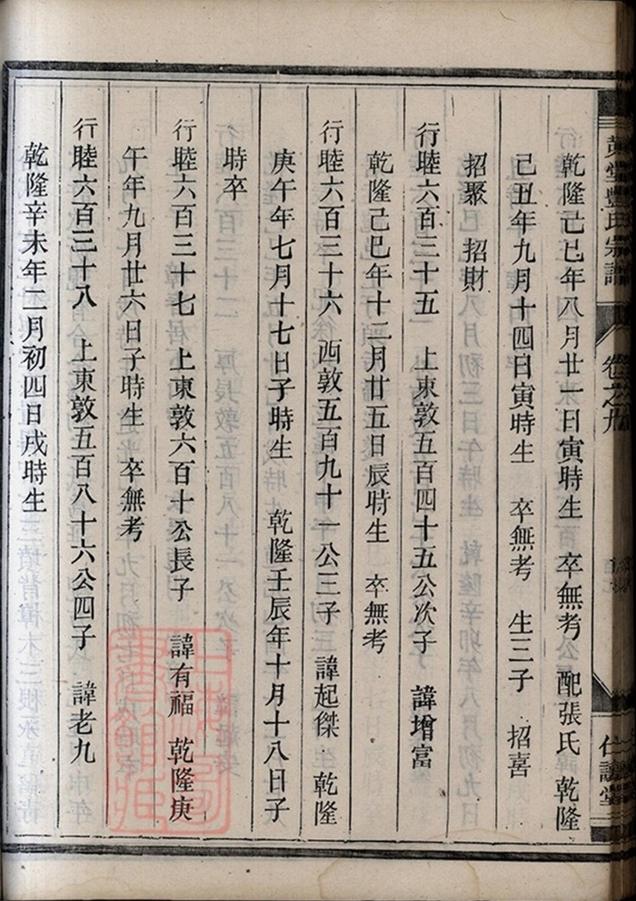 黃堂豐氏宗譜 卷之九
仁讓堂
乾隆己巳年八月廿一日寅時生 卒無考 配張氏 乾隆
己丑年九月十四日寅時生 卒無考 生三子 招喜
招聚 招財
行睦六百三十五 上東敦五百四十五公次子 諱增富
乾隆己巳年十二月廿五日辰時生 卒無考
行睦六百三十六 西敦五百九十一公三子 諱起傑 乾隆
庚午年七月十七日子時生 乾隆壬辰年十月十八日子
時卒
行睦六百三十七 上東敦六百十公長子 諱有福 乾隆庚
午年九月廿六日子時生 卒無考
行睦六百三十八 上東敦五百八十六公四子 諱老九
乾隆辛未年二月初四日戌時生